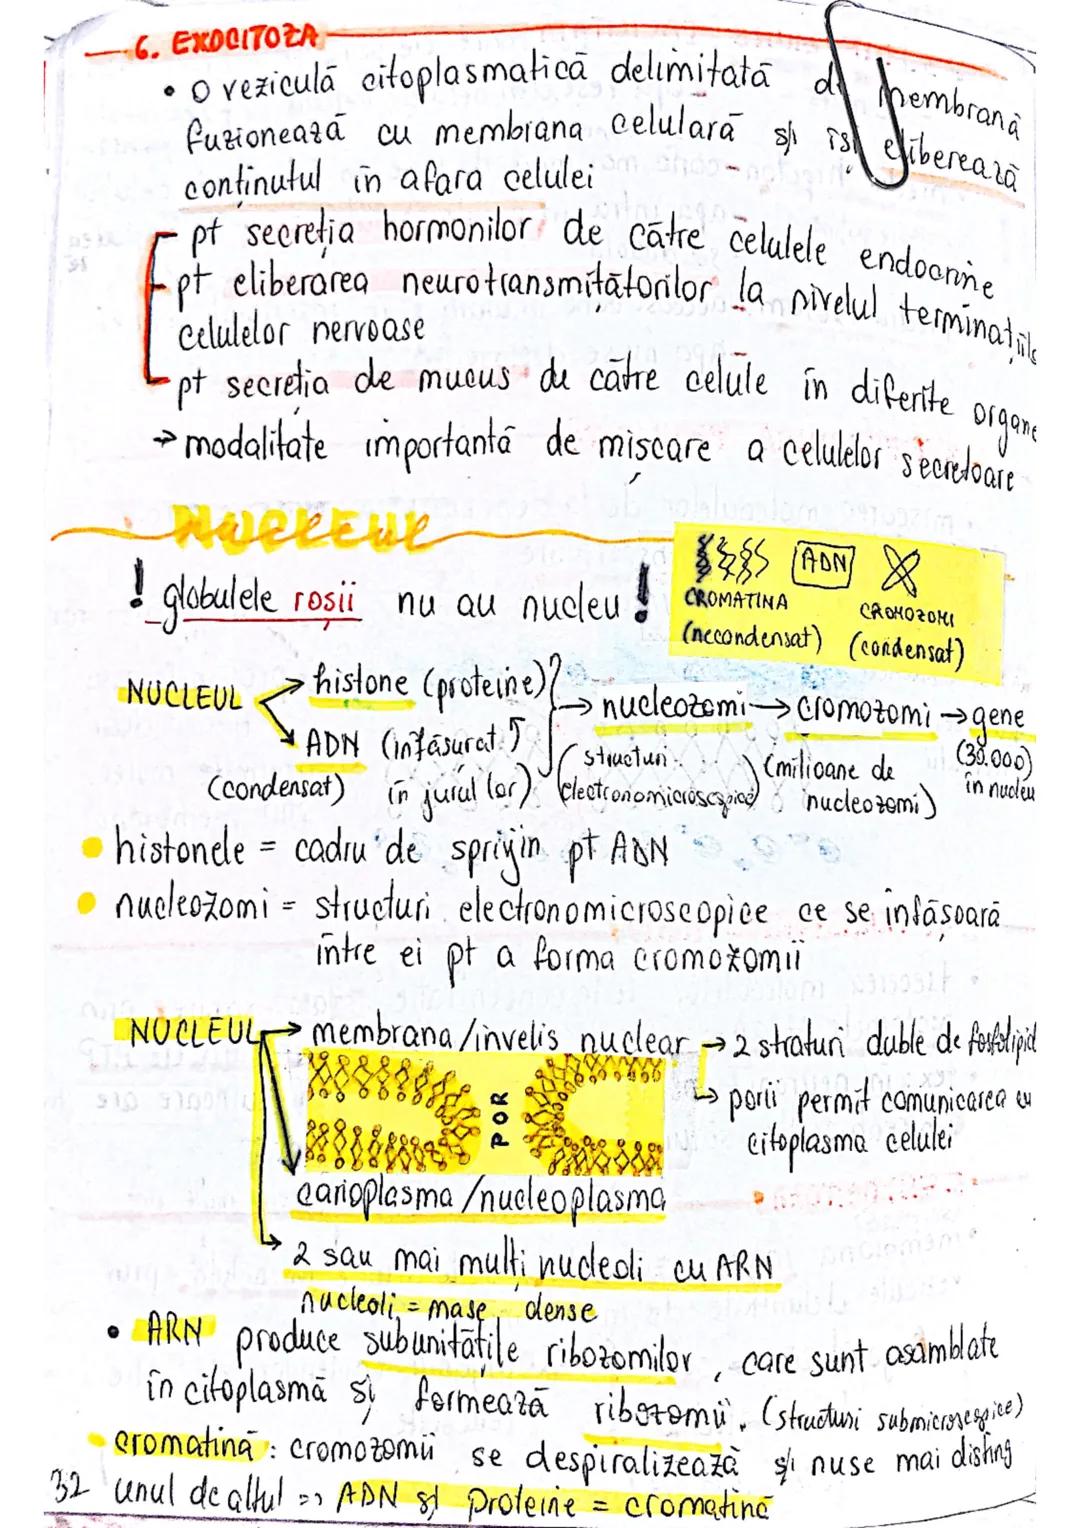 6. EXOCITOZA
• O veziculă citoplasmatică delimitată de membrană
fuzionează cu membrana celulară și își eliberează
conținutul în afara celulei
- pt secreția hormonilor de către celulele endocrine
- pt eliberarea neurotransmițătorilor la nivelul terminațiile
celulelor nervoase
- pt secreția de mucus de către celule în diferite organe
→ modalitate importantă de mișcare a celulelor secretoare
NUCLEUL
! globulele roșii nu au nucleu !
ADN
CROMATINA
(necondensat)
CROMOZOMI
(condensat)
NUCLEUL → histone (proteine) → nucleozomi → cromozomi → gene
→ ADN (înfășurat în jurul lor)
(condensat)
(structuri electronomicroscopice)
(milioane de nucleozomi)
(30.000) în nucleu
• histonele = cadru de sprijin pt ADN
• nucleozomi = structuri electronomicroscopice ce se înfășoară
între ei pt a forma cromozomii
NUCLEUL → membrana/invelis nuclear → 2 straturi duble de fosfolipid
POR
→ porii permit comunicarea cu
citoplasma celulei
carioplasma/nucleoplasma
2 sau mai mulți nucleoli cu ARN
nucleoli = mase dense
• ARN produce subunitățile ribozomilor, care sunt asamblate
în citoplasmă și formează ribozomii. (structuri submicroscopice)
• cromatină: cromozomii se despiralizează și nu se mai disting
unul de altul => ADN și Proteine = cromatină
32